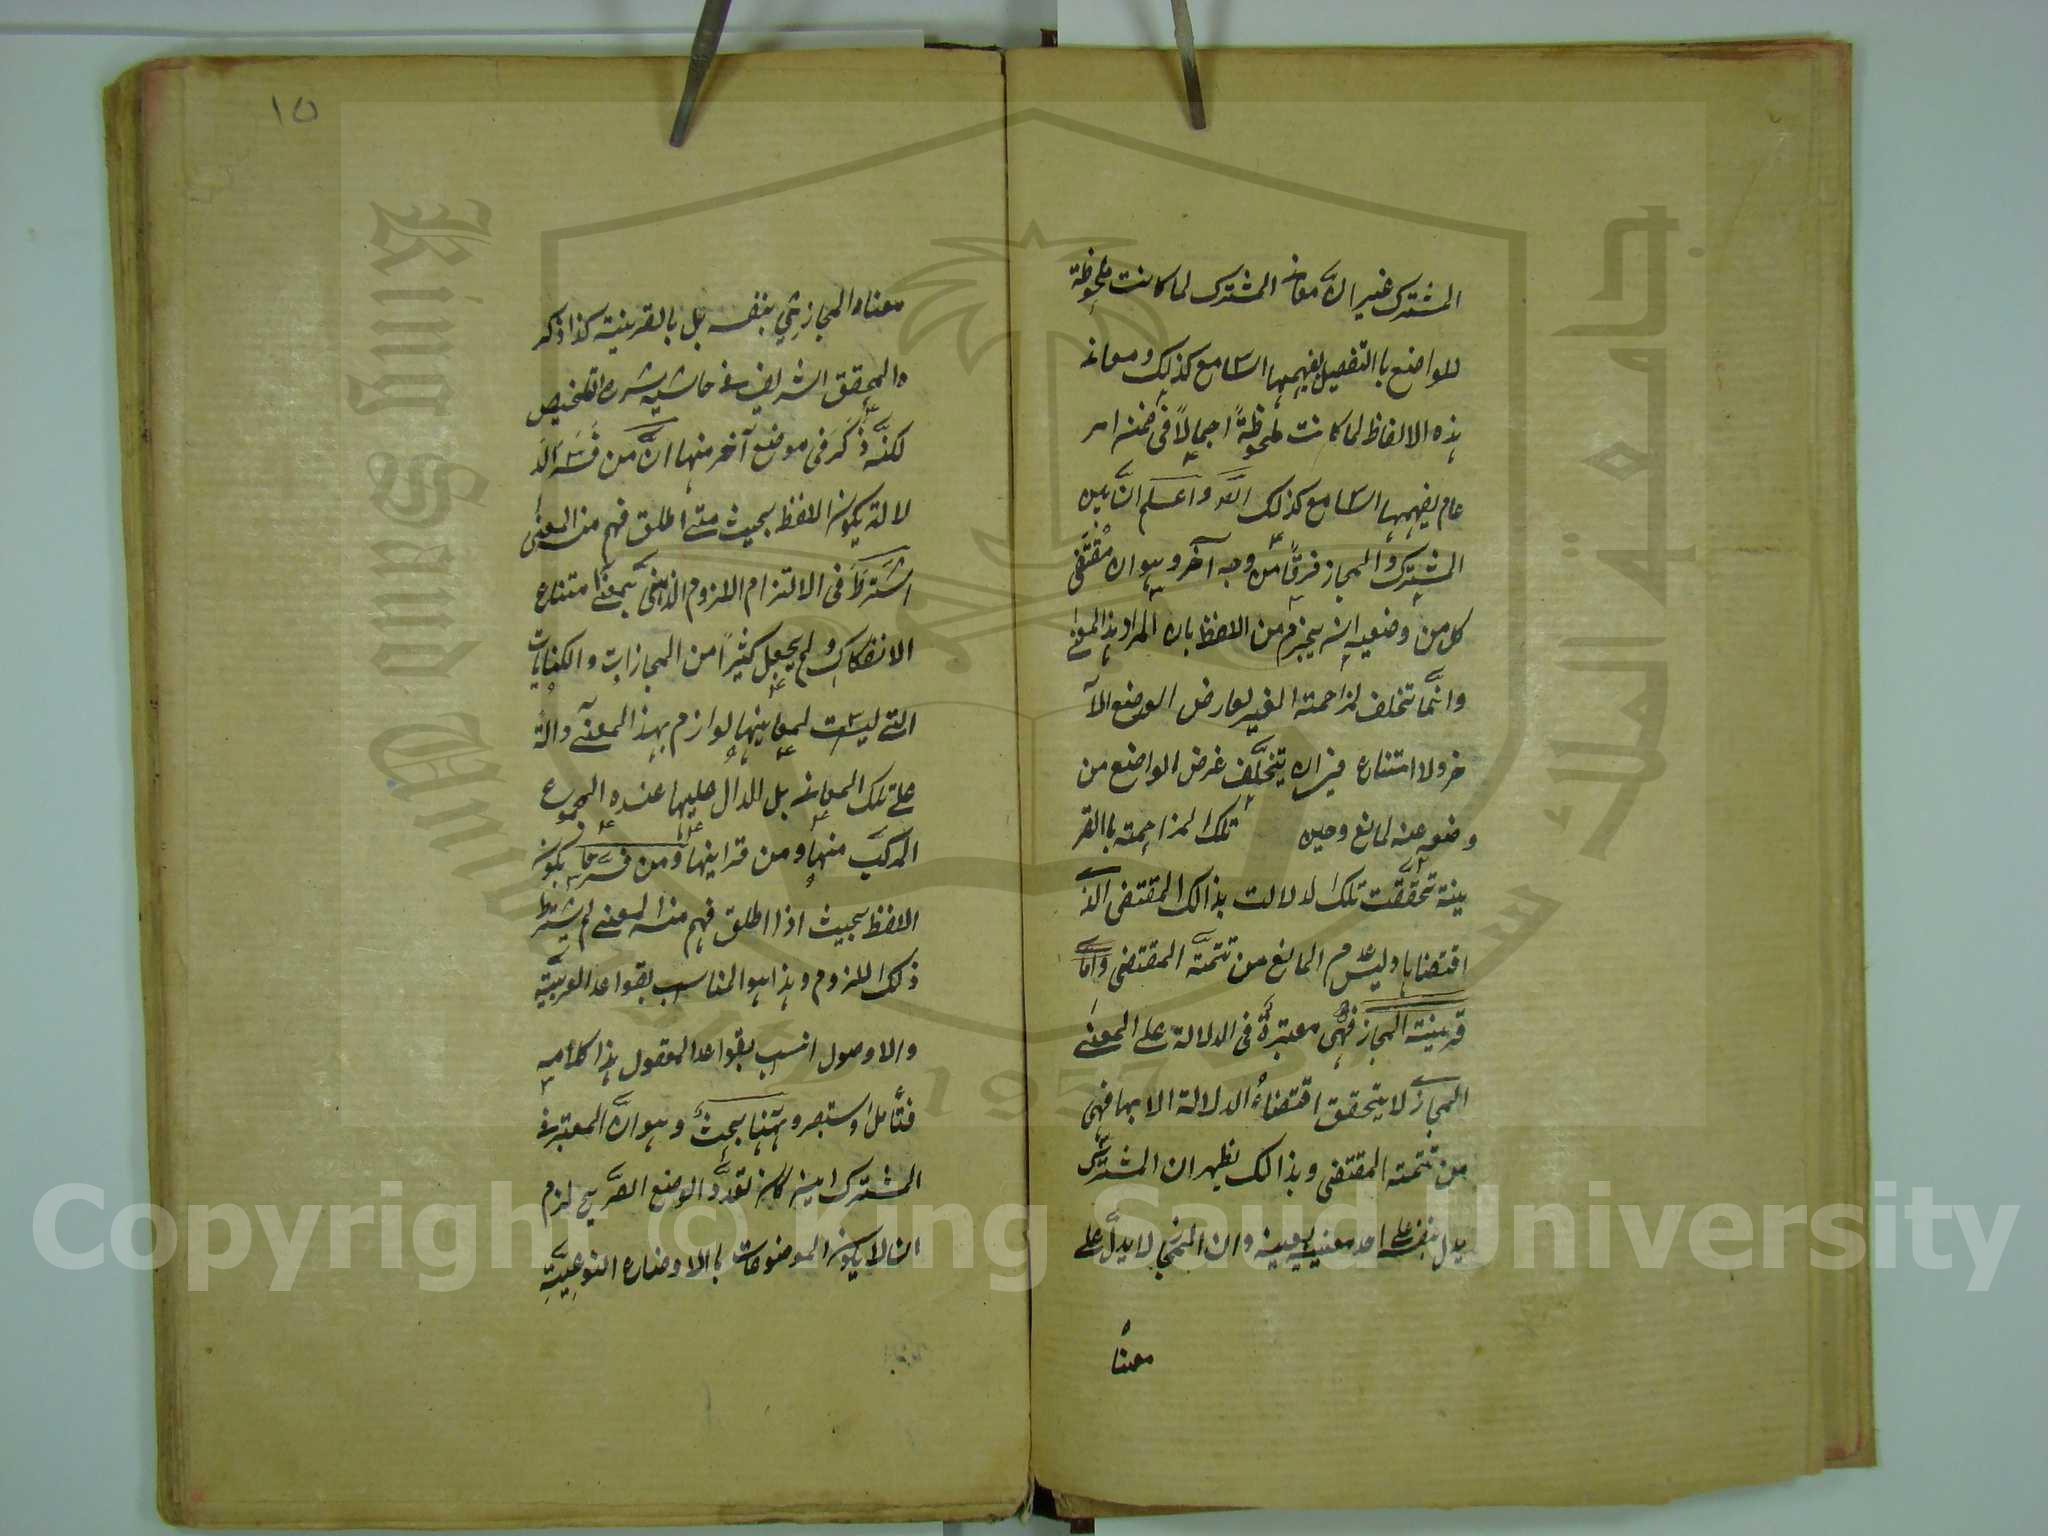 المشترك غير ان معاني المشترك لما كانت ملحوظة
للواضع با التفصيل يفهمها السامع كذلك ومعاني
هذه الالفاظ لما كانت ملحوظةً اجمالاً في ضمنه امر
عام يفهمها السامع كذلك واعلم ان بين
المشترك والمجاز فرقاً من وجه آخر وهو ان مقتضى
كل من وضعيه انه يجزم من اللفظ بان المراد هذا المعنى
وانما تخلف لمزاحمته الغير لعارض الوضع الآ
خر ولا امتناع في ان يتخلّف غرض الواضع من
وضعه عنه لمانع وحين تلك المزاحمته باالقر
ينة تحققت تلك لا لالت بذالك المقتضى الذي
اقتضاها وليس عدم المانع من تتمّة المقتضى واما
قرينة المجاز فهي معتبرةٌ في الدلالة على المعنى
المجازي لا يتحقق اقتضاءُ الدلالة الا بها فهي
من تتمته المقتضى وبذالك يظهر ان المشترك
يدل بنفسه على احد معنييه بعينه وان المجازي لا يدلّ على
معناه
١٥
معناه المجازي بنفسه بل بالقرينة كذا ذكر
ه المحقق الشريف في حاشيه شرح التلخيص
لكنّه ذَكَرَ في موضع آخر منها انّ من فَسَّرَ الد
لالة يكون اللفظ بحيث متى اطلق فهم منه المعنى
اشترطَ في الالتزام اللزوم الذهني بمعنى امتناع
الانفكاك ولم يجعل كثيراً من المجازات والكنايات
التي ليست لمعانيها لوازم بهذا المعنى دالة
على تلك المعاني بل الدال عليها عنده المجموع
المركّب منها ومن قراينها ومن فسّرها يكون
اللفظ بحيث اذا اطلق فهم منه المعنى لم يشترط
ذلك اللزوم وهذا هو المناسب بقواعد العربيّة
والاوصول انسب بقواعد المعقول هذا كلامه
فتأمل واستبصر وههنا بحثٌ وهو انّ المعتبر في
المشترك ان كان تعدّد الوضع الصّريح لزم
ان لا يكون الموضوعات باالاوضاع النوعيّةِ